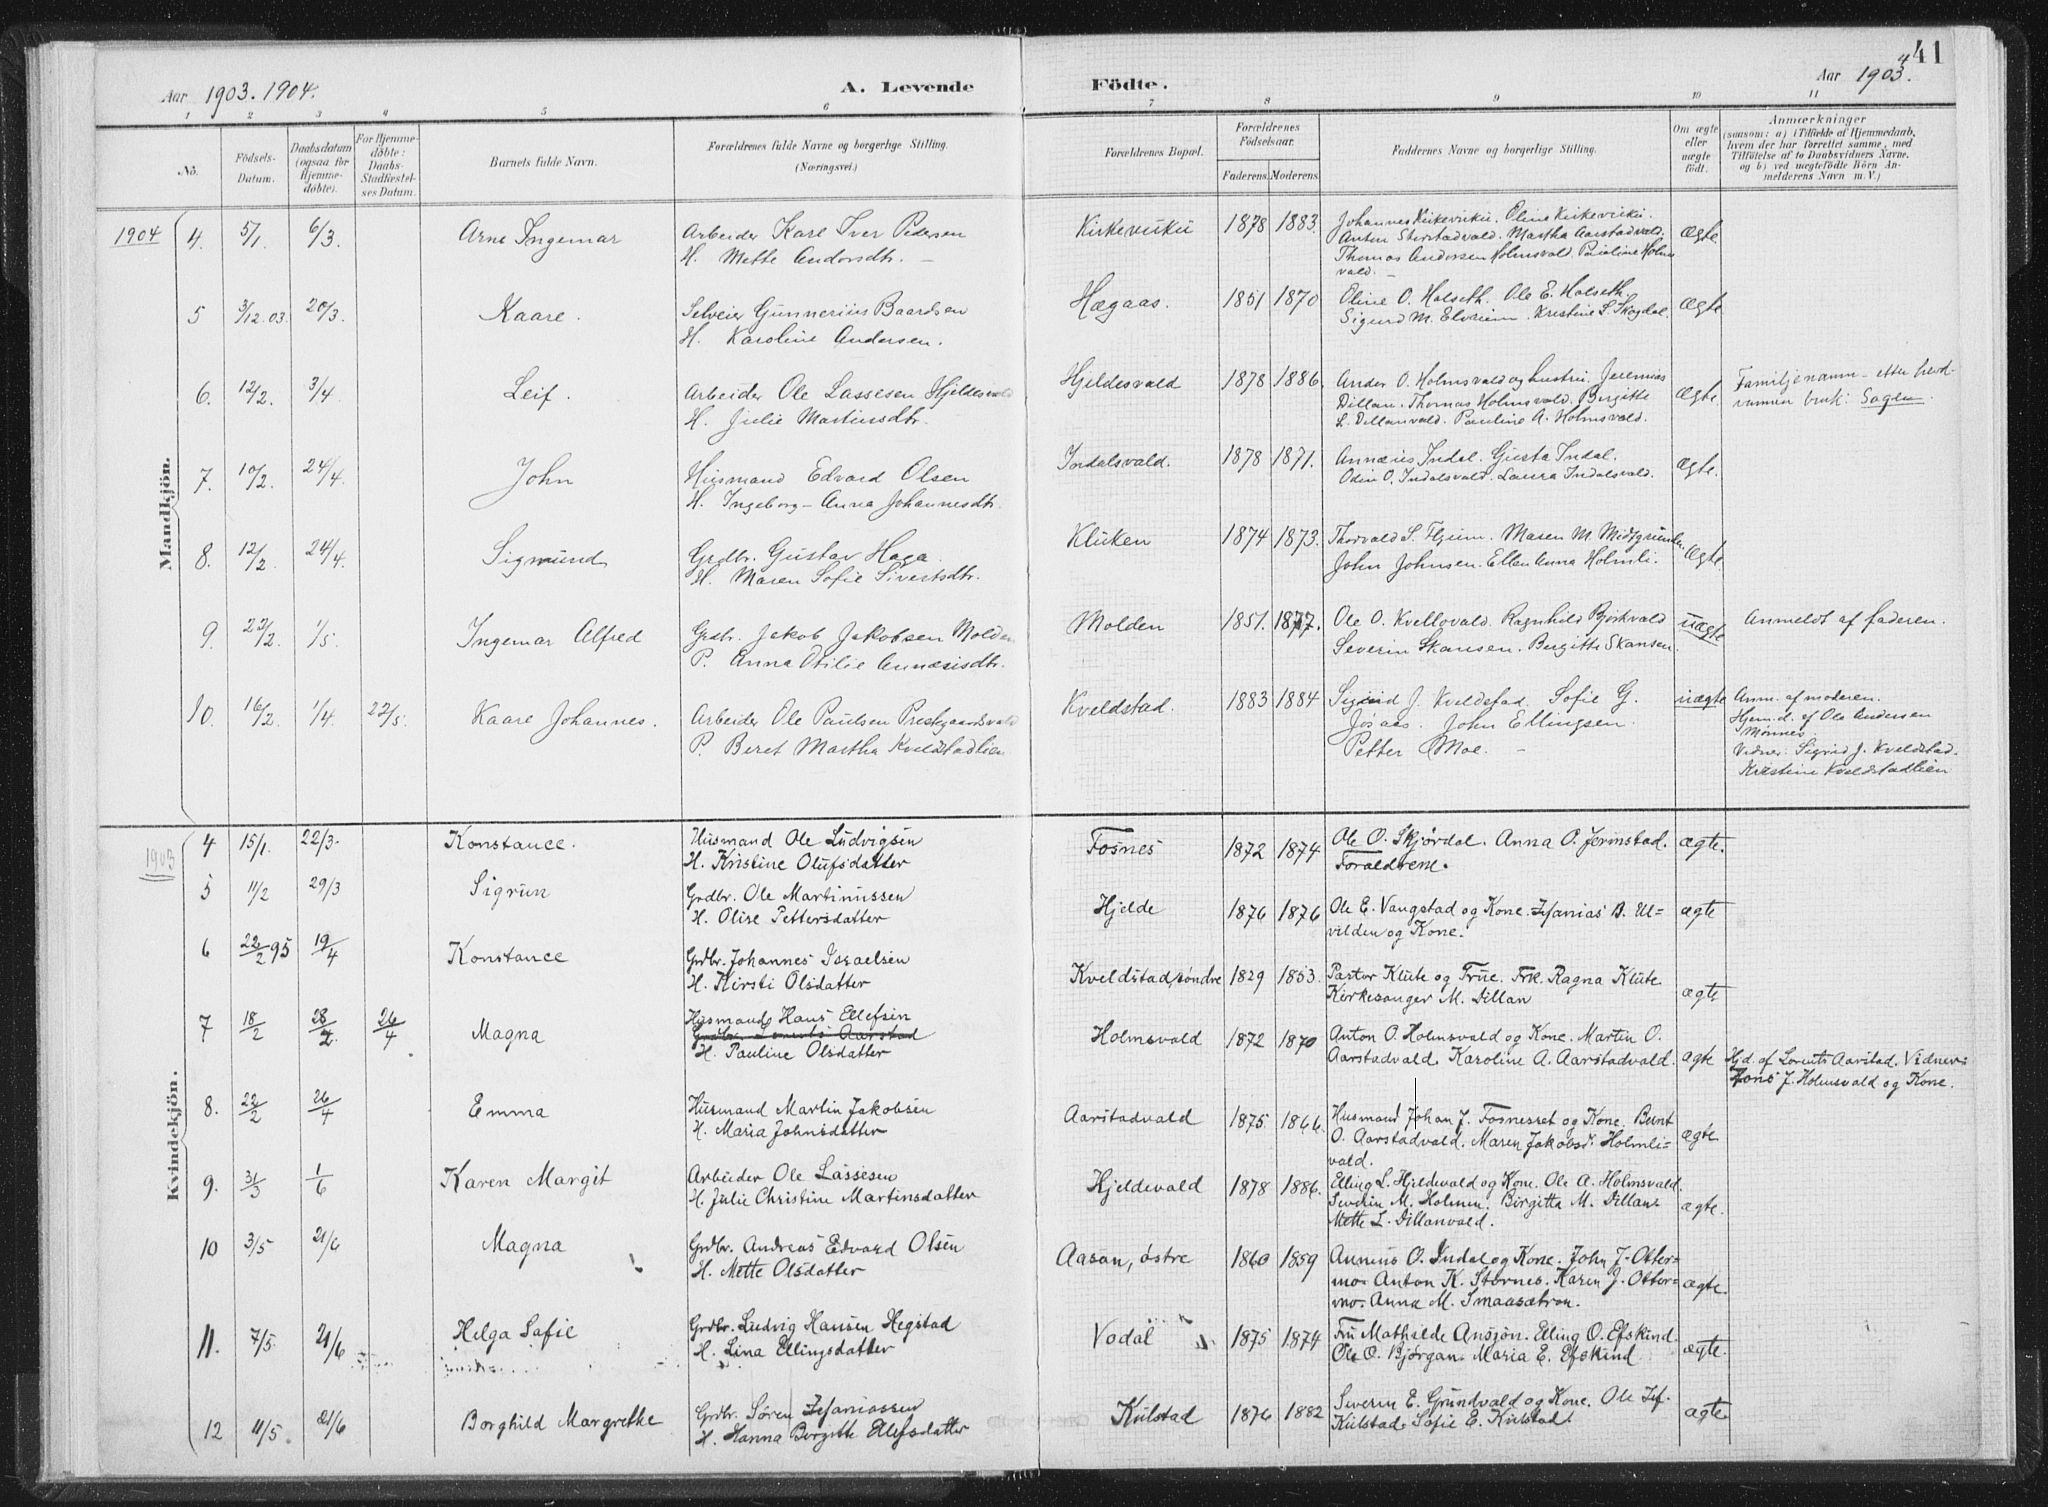 41
Aar 1903. 1904.
A. Levende
Födte.
Aar 1903.
4
1 2 3 4 5 6 7 8 9 10 11
No.
Födsels-
Datum.
Daabsdatum
(ogsaa for
Hjemme-
döbte).
For Hjemme-
döbte:
Daabs-
Stadfæstel-
ses Datum.
Barnets fulde Navn.
Forældrenes fulde Navne og borgerlige Stilling.
(Næringsvei.)
Forældrenes Bopæl.
Forældrenes
Födselsaar.
Faderens. Moderens.
Faddernes Navne og borgerlige Stilling.
Om ægte
eller
uægte
födt.
Anmærkninger
(saasom: a) i Tilfælde af Hjemmedaab,
hvem der har forrettet samme, med
Tilföielse af to Daabsvidners Navne,
og b) ved uægtefödte Börn An-
melderens Navn m. V.)
Mandkjön.
1904 4. 5/1. 6/3. Arne Ingemar Arbeider Karl Iver Pedersen
H. Mette Andorsdtr. –
Kirkevukü 1878 1883. Johannes Kirkevukü. Oline Kirkevukü.
Anton Storstadvald. Martha Aarstadvald.
Thomas Andersen Holmsvald. Pauline Holms
vald. –
Ægte
5 3/12.03. 20/3. Kaare. Selveier Gunnerius Baardsen
H. Karoline Andersen.
Hægaas. 1851 1870 Oline O. Holseth. Ole E. Holseth.
Sigurd M. Elvrum. Kristine S. Skogdal.
Ægte
6. 12/2. 3/4 Leif. Arbeider Ole Lassesen Hjeldesvald
H. Julie Martinsdtr.
Hjeldesvald 1878 1886. Ander O. Holmsvald og hustru. Jeremias
Dillan. Thomas Holmsvald. Birgitte
L. Dillanvald. Pauline A. Holmsvald.
Ægte. Familjenamn – etter herd-
rumen bruk: Sagen.
7. 10/2. 24/4. John Husmand Edvard Olsen
H. Ingeborg – Anna Johannesdtr.
Indalsvald. 1878 1871. Annæus Indal. Gusta Indal.
Odin O. Indalsvald. Laura Indalsvald.
Ægte.
8. 12/2 24/4. Sigmund Grdbr. Gustav Haga.
H. Maren Sofie Sivertsdtr.
Kluken 1874 1873. Thorvald S. Flyum. Maren M. Midtgrunden.
John Johnsen. Ellen Anna Holmli.
Ægte.
9. 22/2. 1/5. Ingemar Alfred Grdbr. Jakob Jakobsen Molden
P. Anna Otilie Annæsisdtr.
Molden 1851. 1877. Ole O. Kvellovald. Ragnhild Bjørkvald
Severin Skansen. Birgitte Skansen.
uægte Anmeldt af faderen.
10. 16/2. 1/4. 22/5. Kaare Johannes. Arbeider Ole Paulsen Prestegaardsvald
P. Beret Martha Kveldstadlien
Kveldstad. 1883 1884 Sigrid J. Kveldstad. Sofie G.
Josaas. John Ellingsen.
Petter Moe. –
uægte Anm. af moderen.
Hjem.d. af Ole Andersen
Mønnes
Vidner: Sigrid J. Kveldstad.
Kristine Kveldstadlien
Kvindekjön.
1903 4 15/1. 22/3. Konstance. Husmand Ole Ludvigsen
H. Kristine Olufsdatter
Fosnes 1872 1874 Ole O. Skjørdal. Anna O. Jerinstad.
Foraldrene.
ægte.
5 11/2 29/3 Sigrun Grdbr. Ole Martinussen
H. Olise Pettersdatter
Hjelde 1876 1876 Ole E. Vangstad og Kone. Zefanias B. Ul=
vilden og Kone.
ægte
6 22/2 95 19/4 Konstance Grdbr. Johannes Israelsen
H. Kirsti Olsdatter
Kveldstad, søndre 1829 1853. Pastor Klüte og Frue. Frk. Ragna Klüte.
Kirkesanger M. Dillan
ægte
7 18/2 28/2. 26/4 Magna Husmand Hans Ellefsen
Grdbr. Lorents Aarstad
H. Pauline Olsdatter
Holmsvald 1872 1870 Anton O. Holmsvald og Kone. Martin O.
Aarstadvald. Karoline A. Aarstadvald.
ægte Hjd. af Lorents Aarstad. Vidner:
Hans J. Holmsvald og Kone.
8. 22/2 26/4 Emma Husmand Martin Jakobsen
H. Maria Johnsdatter
Aarstadvald 1875 1866. Husmand Johan J. Fosnesset og Kone. Bent
O. Aarstadvald. Maren Jakobsd. Holmli=
vald.
ægte
9. 31/3 1/6 Karen Margit Arbeider Ole Lassesen
H. Julie Christine Martinsdatter
Hjeldevald 1878 1886. Elling L. Hjeldevald og Kone. Ole A. Holmsvald
Severin M. Holmen. Birgitta M. Dillan.
Mette L. Dillanvald.
ægte.
10 3/5 21/6 Magna Grdbr. Andreas Edvard Olsen
H. Mette Olsdatter
Aasan, østre 1860 1859 Annæus O. Indal og Kone. John J. Otter=
mo. Anton K. Stornes. Karen J. Otter=
mo. Anna M. Smaasætran.
ægte.
11. 7/5. 21/6 Helga Sofie Grdbr. Ludvig Hansen Hegstad
H. Lina Ellingsdatter
Vodal 1875 1874 Fru Mathilde Ansjøn. Elling O. Efskind
Ole O. Bjørgan. Maria E. Efskind
ægte.
12 11/5. 21/6 Borghild Margrethe Grdbr. Søren Zefaniassen
H. Hanna Birgitte Ellefsdatter
Kulstad 1876 1882 Severin E. Grundvald og Kone. Ole Zef.
Kulstad. Sofie E. Kulstad.
ægte